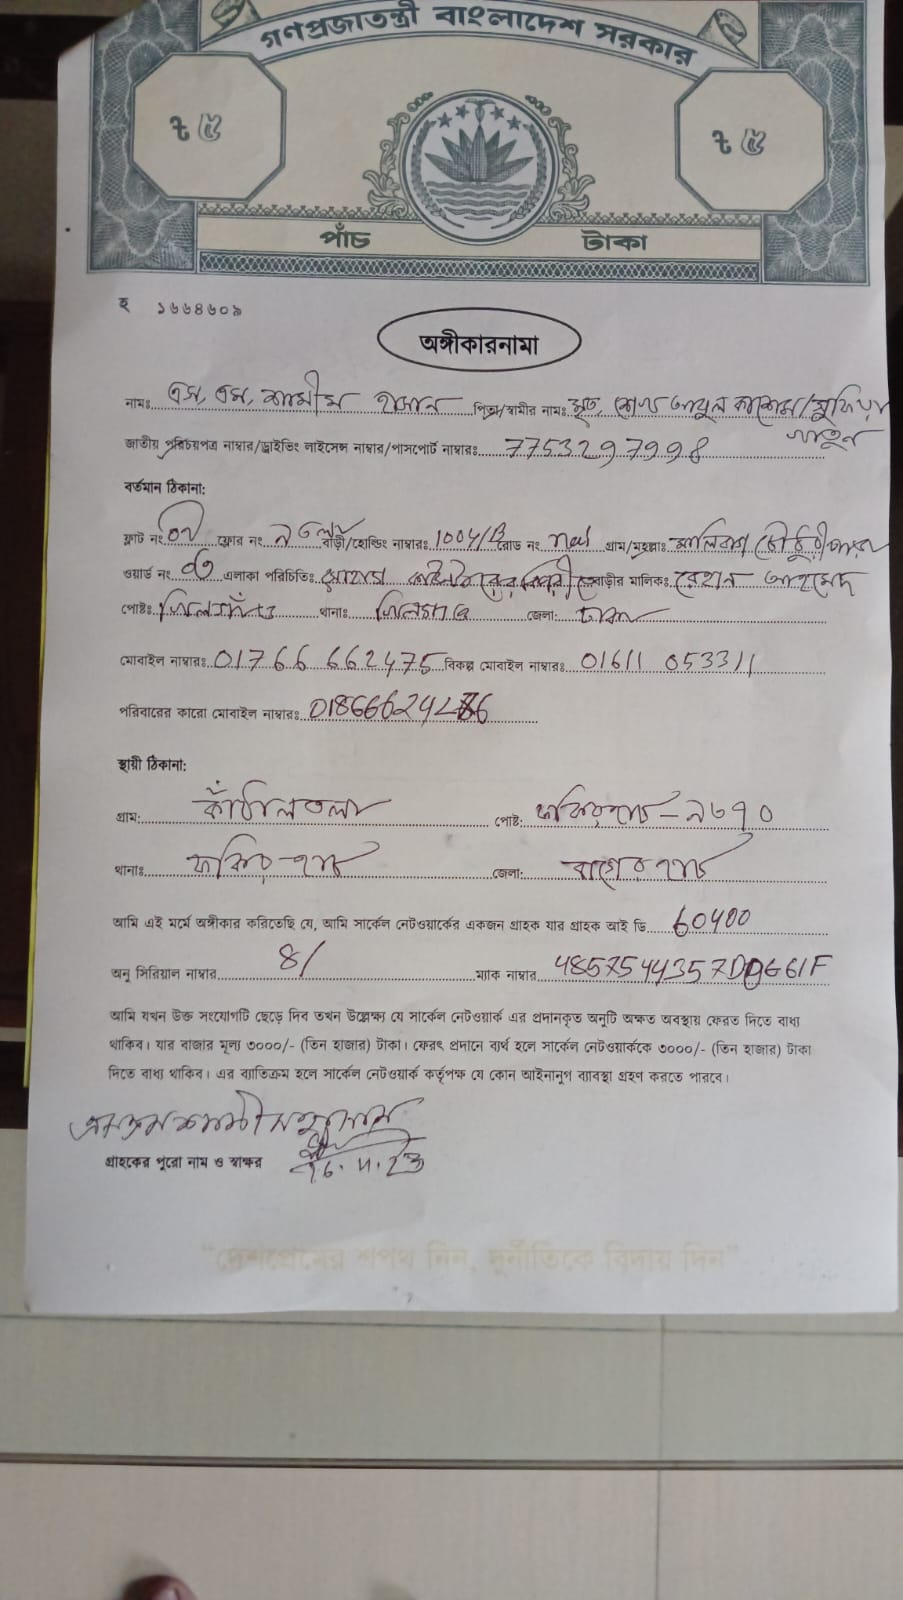 গণপ্রজাতন্ত্রী বাংলাদেশ সরকার
৳ ৫ ৳ ৫
পাঁচ টাকা
হ ১৬৬৪৬০৯
অঙ্গীকারনামা
নামঃ এস, এম, শামীম হাসান পিতা/স্বামীর নাম: মৃত, শেখ আবুল কাশেম/সুফিয়া
খাতুন
জাতীয় পরিচয়পত্র নাম্বার/ড্রাইভিং লাইসেন্স নাম্বার/পাসপোর্ট নাম্বারঃ 7753297998
বর্তমান ঠিকানা:
ফ্লাট নং ফ্লোর নং বাড়ী/হোল্ডিং নাম্বারঃ রোড নং গ্রাম/মহল্লাঃ চৌধুরীপাড়া
ওয়ার্ড নং এলাকা পরিচিতিঃ বাড়ীর মালিক: রেহান আহমেদ
পোষ্টঃ খিলগাঁও থানাঃ খিলগাঁও জেলা: ঢাকা
মোবাইল নাম্বারঃ 01766 662475 বিকল্প মোবাইল নাম্বারঃ 01611 053311
পরিবারের কারো মোবাইল নাম্বারঃ
স্থায়ী ঠিকানা:
গ্রাম: কাঁঠালতলা পোষ্ট: ফকিরহাট - ৯৩৭০
থানাঃ ফকিরহাট জেলা: বাগেরহাট
আমি এই মর্মে অঙ্গীকার করিতেছি যে, আমি সার্কেল নেটওয়ার্কের একজন গ্রাহক যার গ্রাহক আই ডি 60400
অনু সিরিয়াল নাম্বার ম্যাক নাম্বার
আমি যখন উক্ত সংযোগটি ছেড়ে দিব তখন উল্লেক্ষ্য যে সার্কেল নেটওয়ার্ক এর প্রদানকৃত অনুটি অক্ষত অবস্থায় ফেরত দিতে বাধ্য
থাকিব। যার বাজার মূল্য ৩০০০/- (তিন হাজার) টাকা। ফেরৎ প্রদানে ব্যর্থ হলে সার্কেল নেটওয়ার্ককে ৩০০০/- (তিন হাজার) টাকা
দিতে বাধ্য থাকিব। এর ব্যাতিক্রম হলে সার্কেল নেটওয়ার্ক কর্তৃপক্ষ যে কোন আইনানুগ ব্যাবস্থা গ্রহণ করতে পারবে।
গ্রাহকের পুরো নাম ও স্বাক্ষর
"দেশপ্রেমের শপথ নিন, দুর্নীতিকে বিদায় দিন"